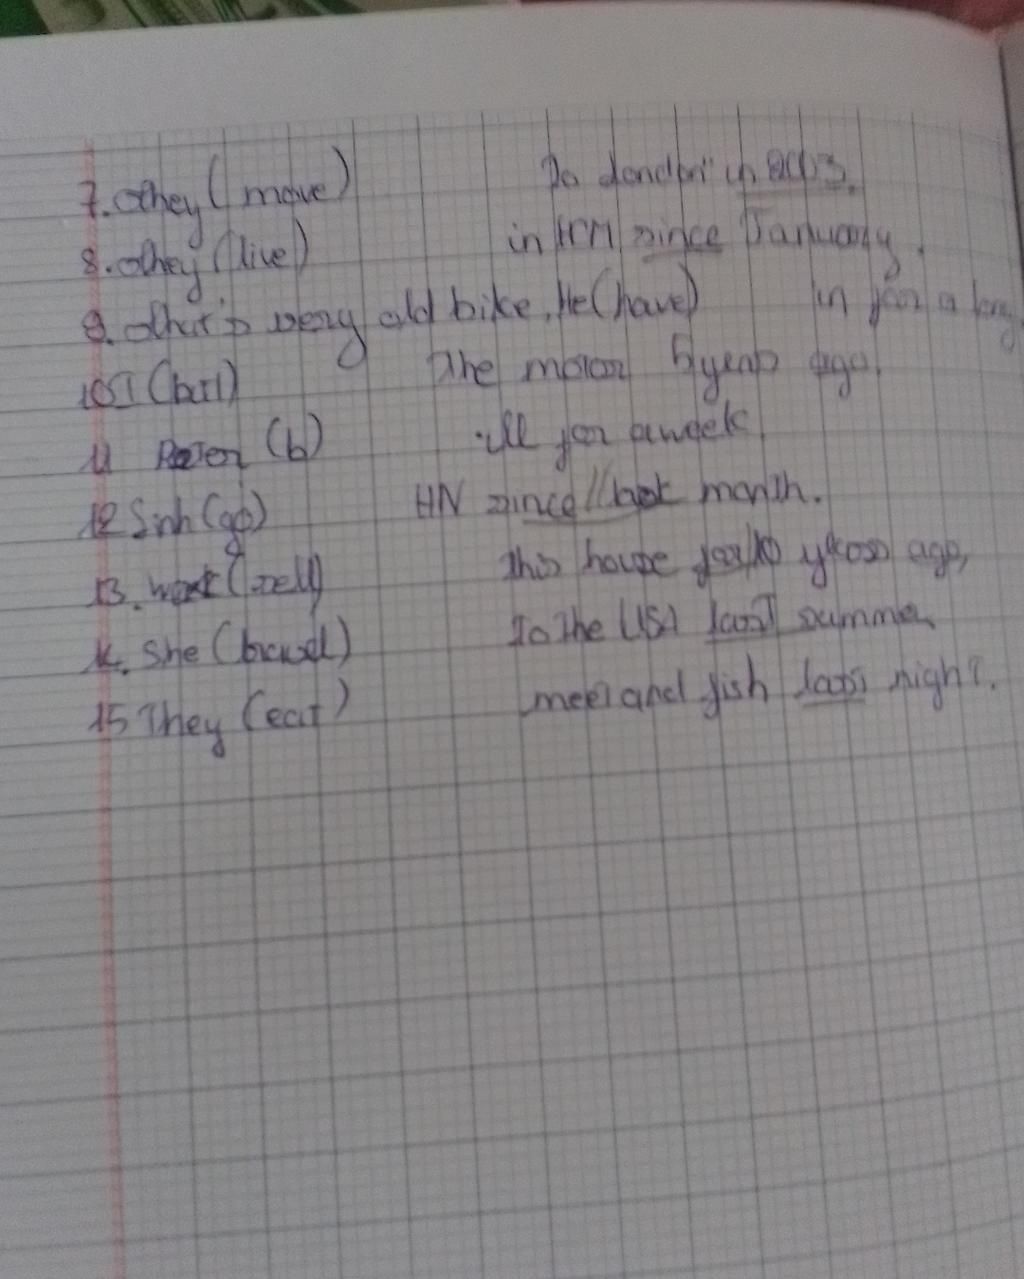 7. they (move) To London in 2003.
8. they (live) in HCM since January.
9. that's very old bike, He (have) in for a long
10 I (buy) The motor 5 years ago.
11 Peter (b) ill for a week
12 Sinh (go) HN since last month.
13. (sell) this house years ago,
14. She (travel) To the USA last summer
15 They (eat) meet and fish last night.